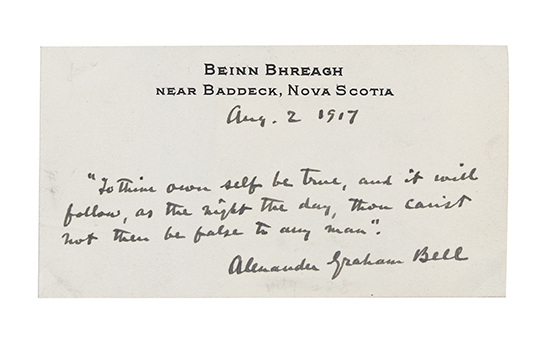 BEINN BHREAGH
NEAR BADDECK, NOVA SCOTIA
Aug. 2 1917
"To thine own self be true, and it will
follow, as the night the day, thou canst
not then be false to any man".
Alexander Graham Bell